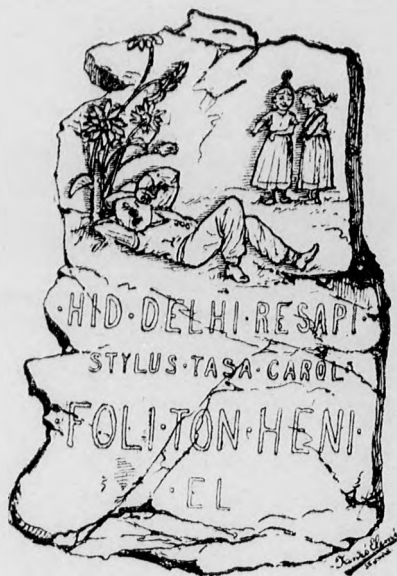 ·HYD·DELHI·RESAPI·
STYLUS·TASA·CAROL·
·FOLI·TON·HENI·
·EL